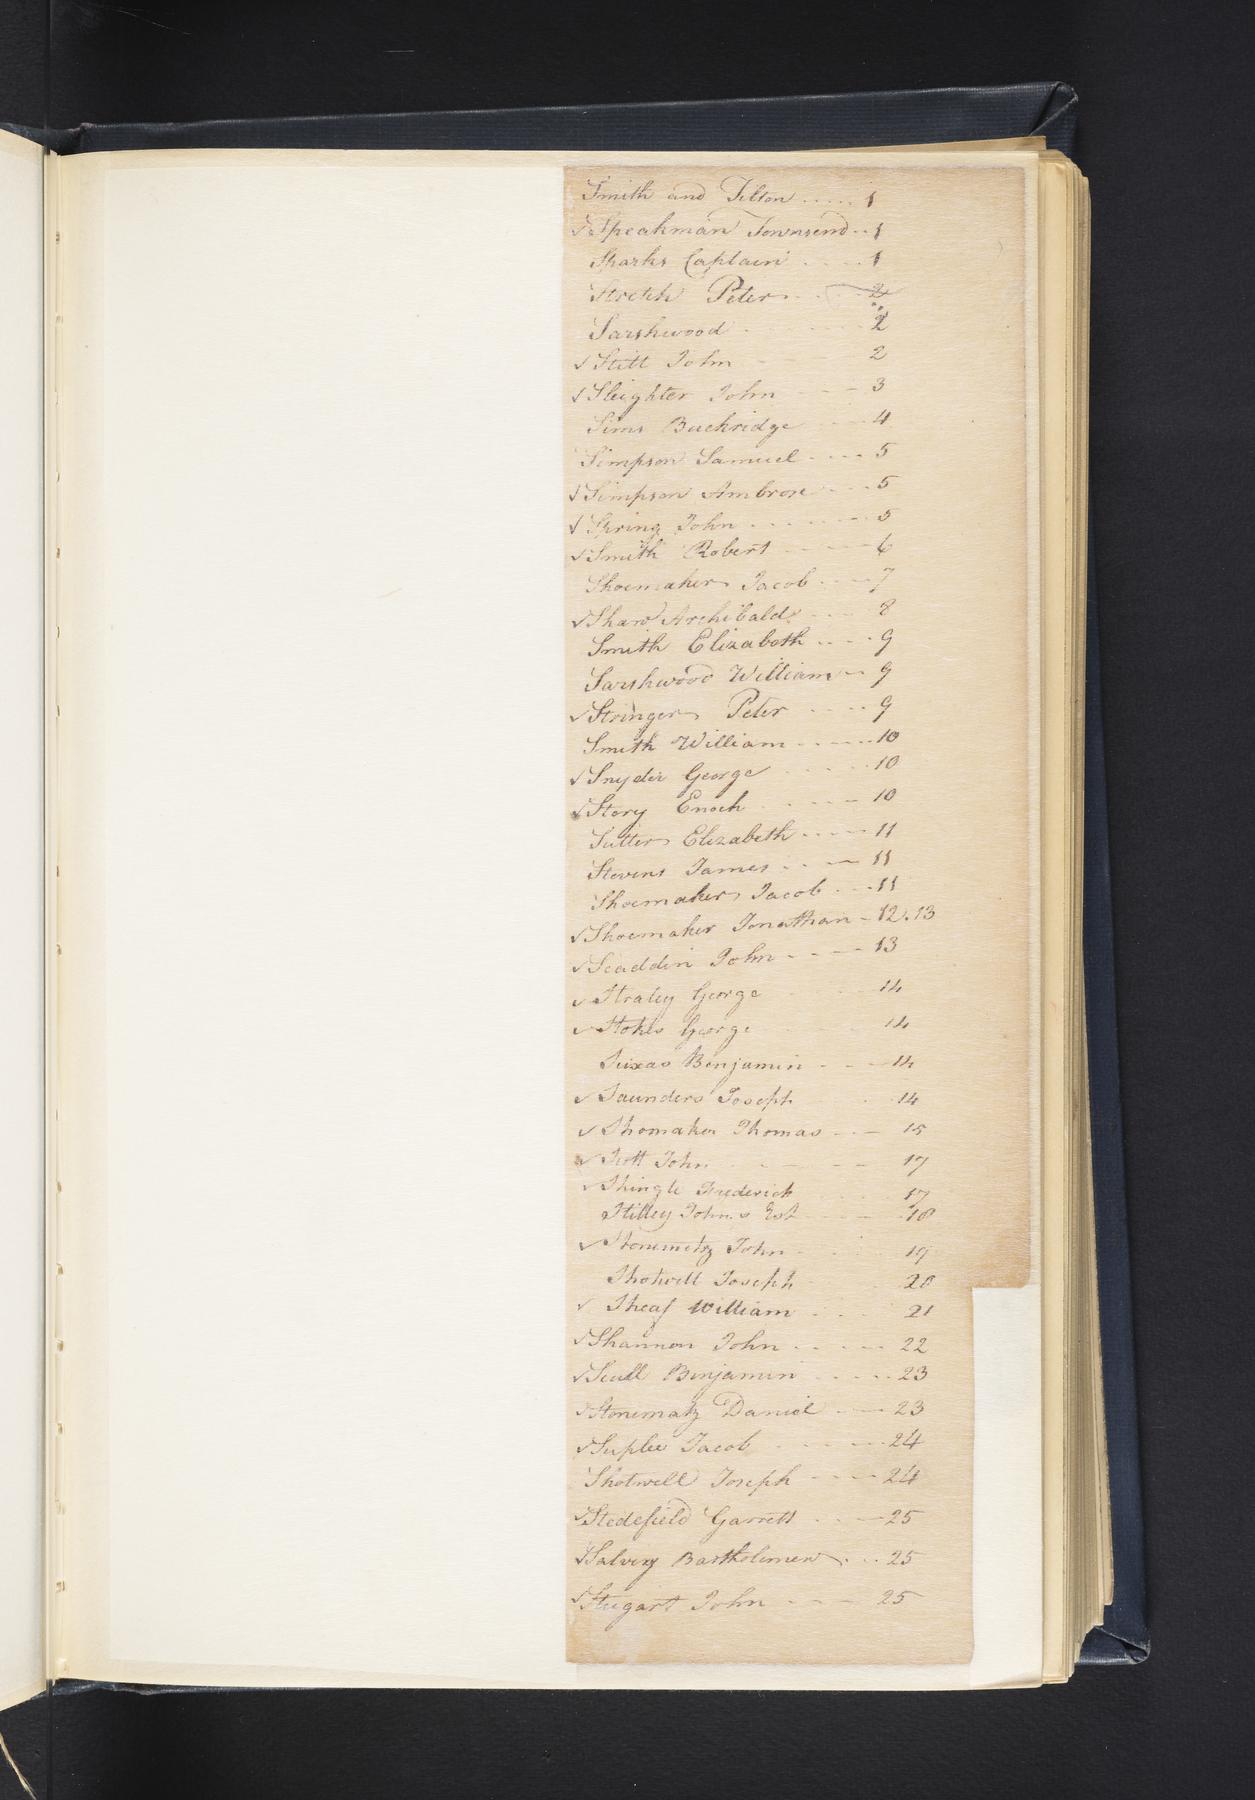 Smith and Tilton ..... 1
✓ Speakman Townsend .. 1
Sparks Captain .... 1
Stretch Peter .. 2
Sarshwood . ... 2
✓ Stitt John - 2
✓ Sleighter John --- 3
Sims Buckridge --- 4
Simpson Samuel .--- 5
✓ Simpson Ambrose --- 5
✓ Spring John ...... 5
✓ Smith Robert ---- 6
Shoemaker Jacob ---- 7
✓ Sharo Archibald --- 8
Smith Elizabeth .... 9
Sarshwood William -- 9
✓ Stringer Peter .... 9
Smith William ------ 10
✓ Snyder George ..... 10
✓ Story Enoch .... 10
Sutter Elizabeth ---- 11
Stevens James .. -- 11
Shoemaker Jacob ... 11
✓ Shoemaker Jonathan - 12.13
✓ Scaddin John ---- 13
✓ Straley George .... 14
✓ Stokes George 14
Seixas Benjamin --- 14
✓ Saunders Joseph 14
✓ Shomaker Thomas --- 15
✓ Scott John ---- 17
✓ Shingle Frederick 17
Stilley John's Est --- 18
✓ Stonemetz John -- 19
Shotwell Joseph 20
✓ Sheaf William .... 21
✓ Shannon John ..... 22
✓ Scull Benjamin ..... 23
✓ Stonematz Daniel --- 23
✓ Suplee Jacob ---- 24
Shotwell Joseph ---- 24
✓ Stedefield Garrett --- 25
✓ Salvery Bartholemew ... 25
✓ Stugart John --- 25